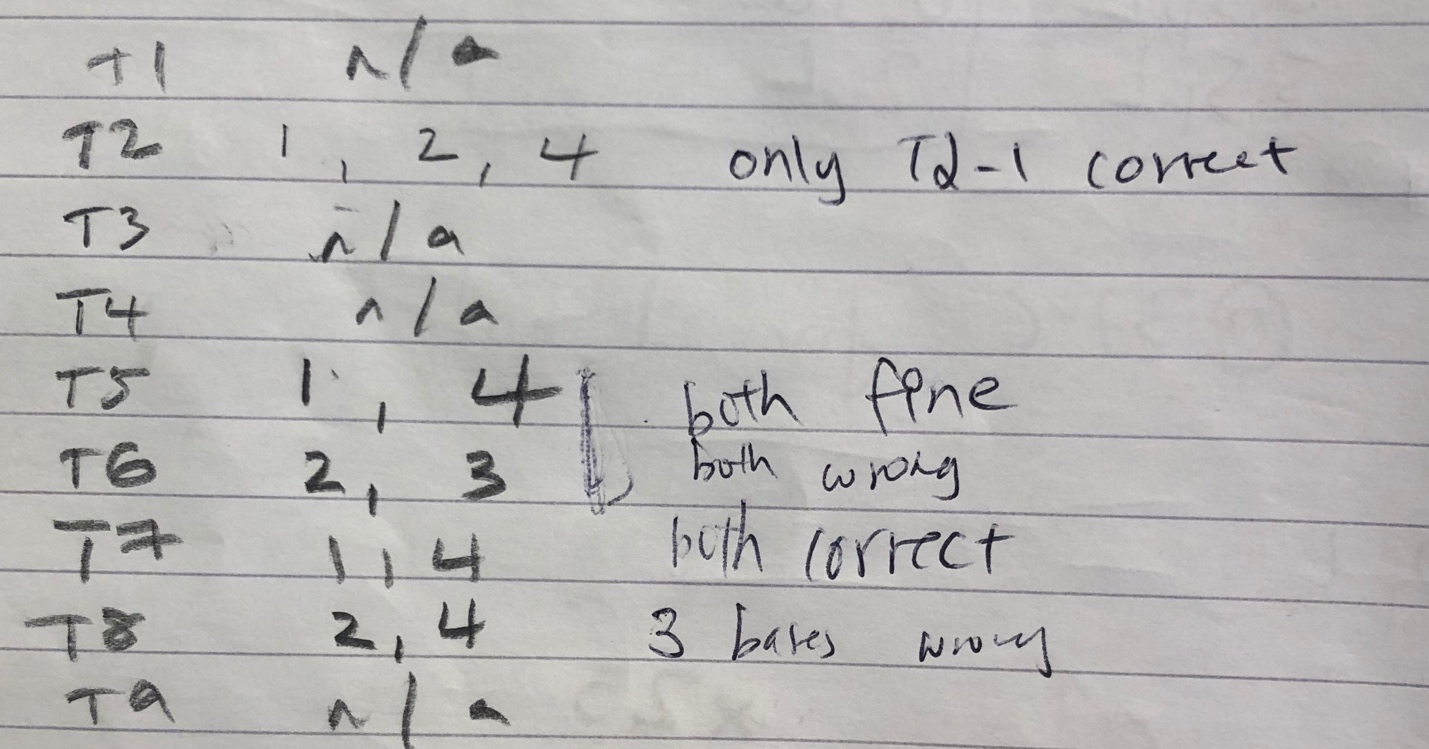 T1 n/a
T2 1, 2, 4 only T2-1 correct
T3 n/a
T4 n/a
T5 1, 4 both fine
T6 2, 3 both wrong
T7 1, 4 both correct
T8 2, 4 3 bases wrong
T9 n/a